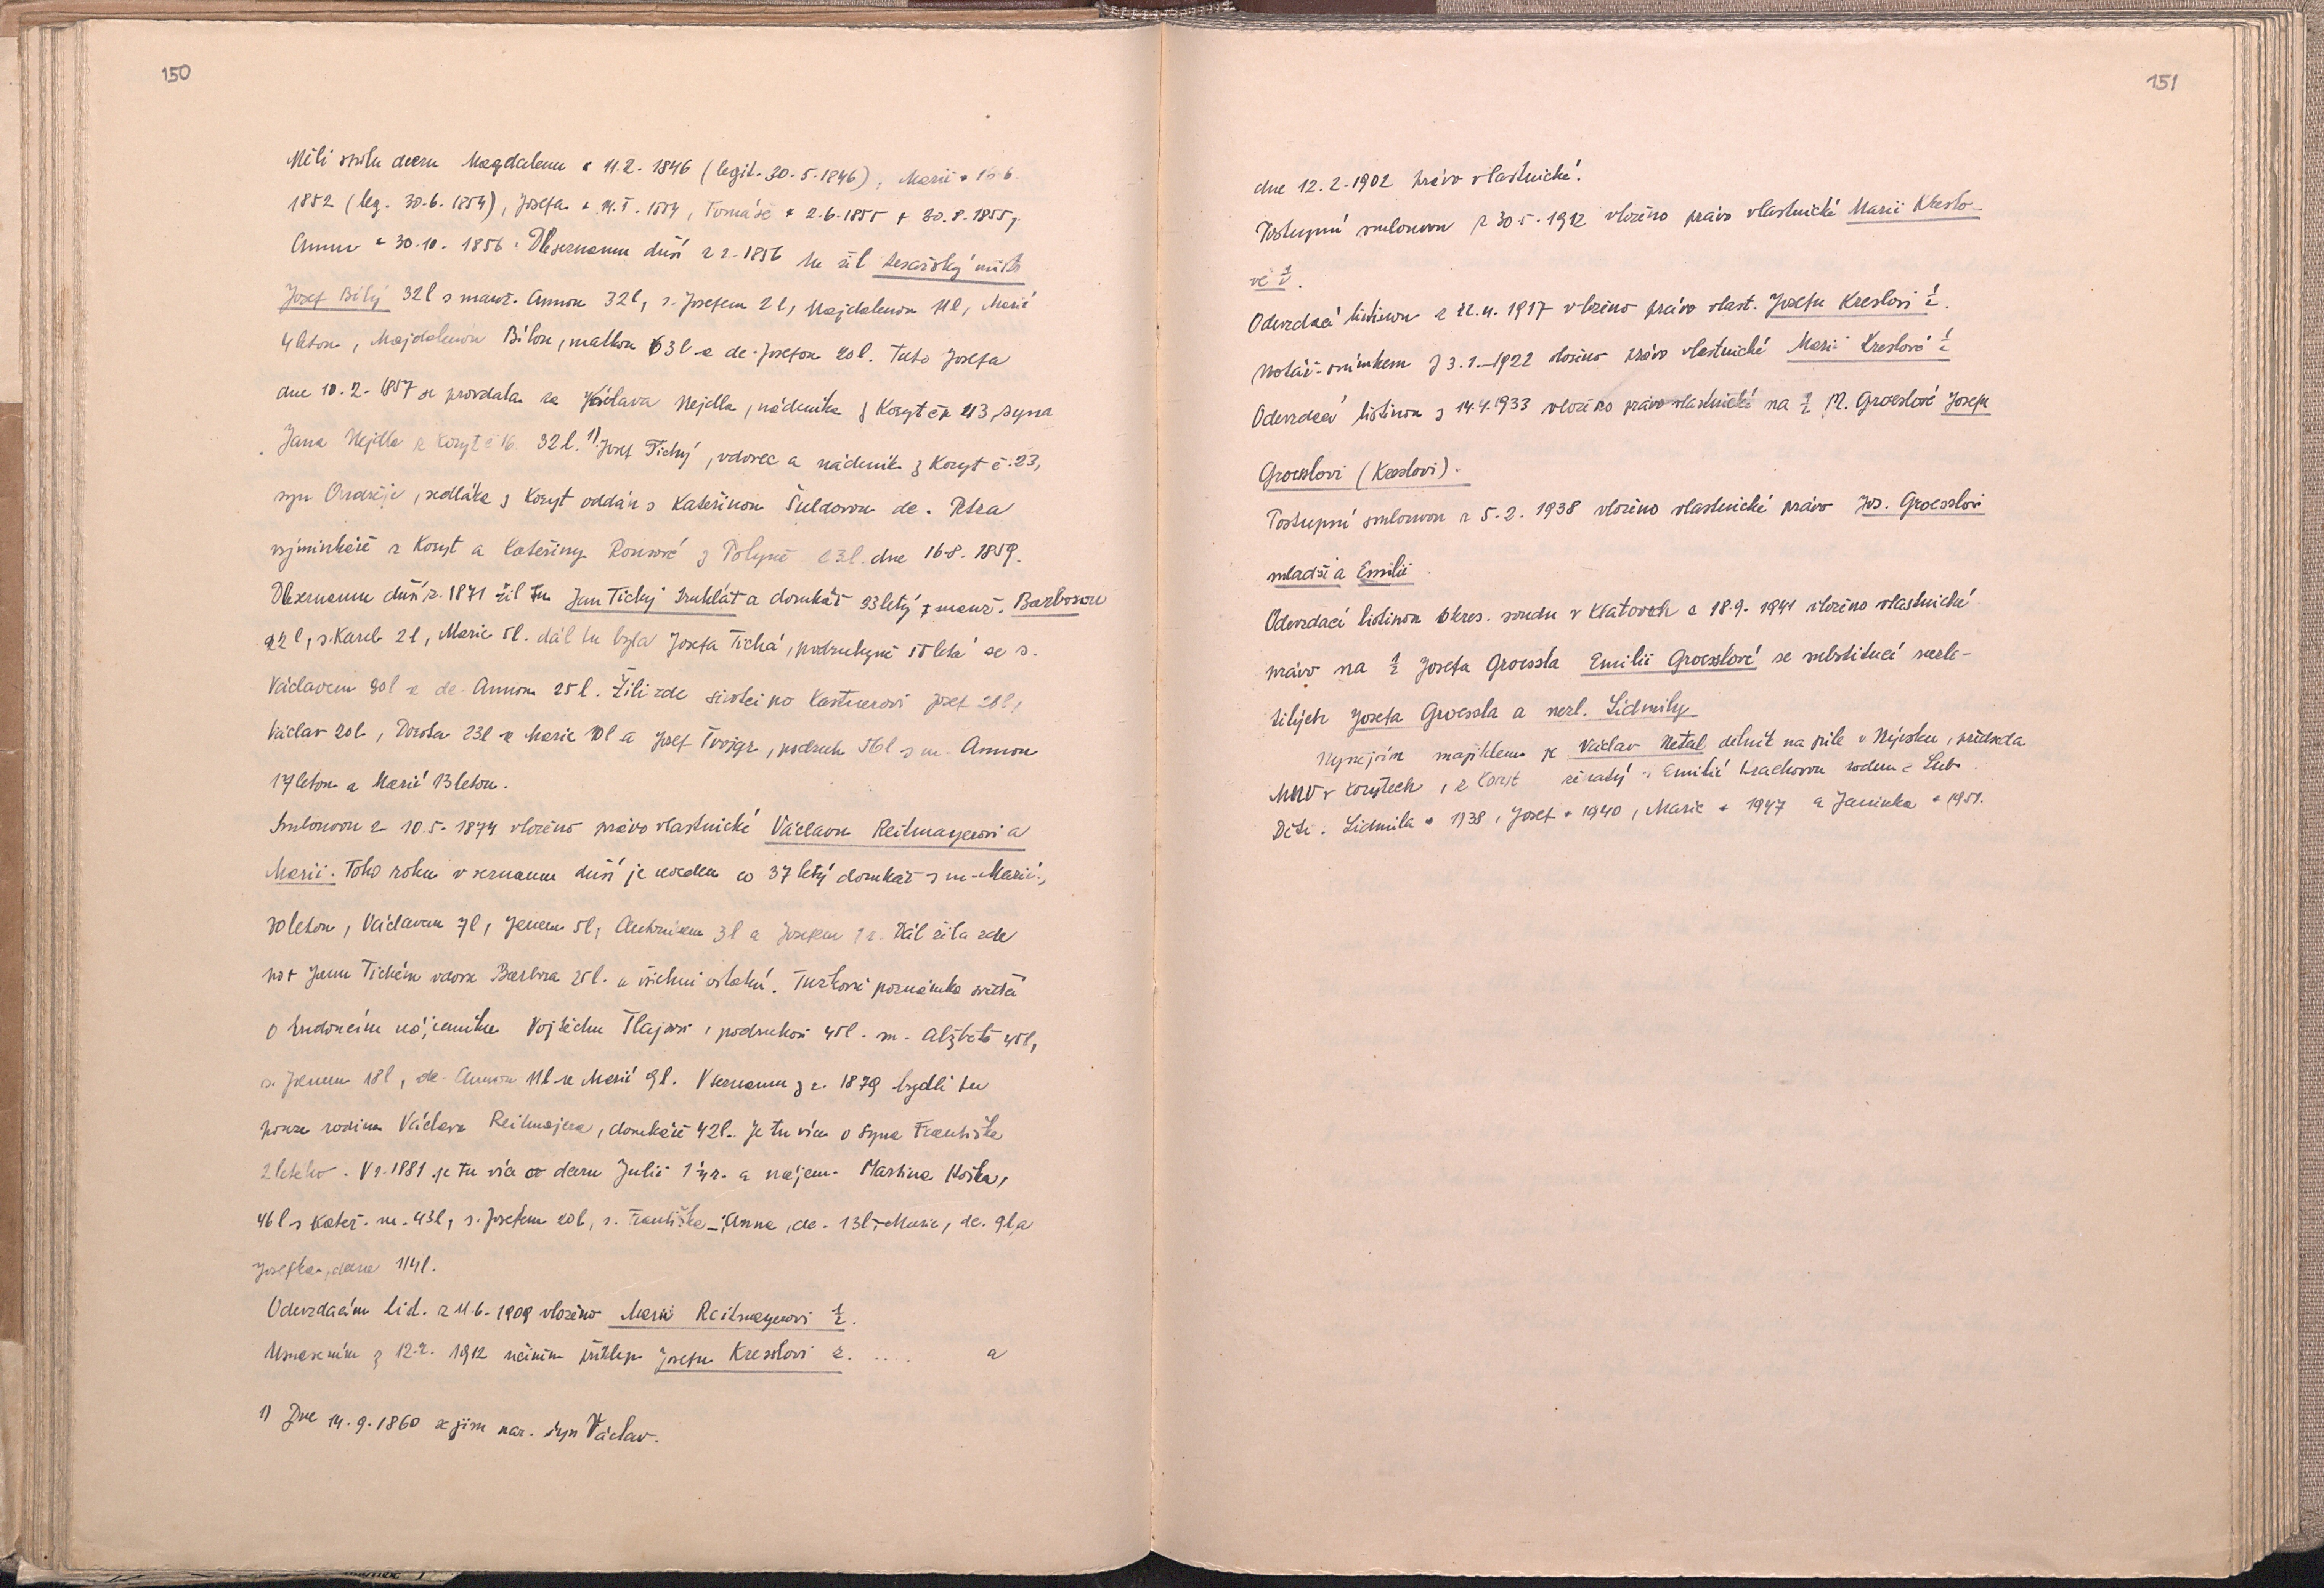 150
Měli spolu dceru Magdalenu * 11.2. 1846 (legit. 30.5.1846), Marii * 16.6.
1852 (leg. 30.6.1854), Josefa * 14.5. 1854, Tomáše * 2.6.1855 + 30.8.1855,
Annu * 30.10. 1856. Dle seznamu duší z r. 1856 tu žil tesařský mistr
Josef Bílý 32l s manž. Annou 32l, s. Josefem 2l, Majdalenou 11l, Marií
4letou, Majdalenou Bílou, matkou 63l a dc. Josefou 20l. Tato Josefa
dne 10.2. 1857 se provdala za Václava Nejdla, nádeníka z Koryt čp 43, syna
Jana Nejdla z Koryt č 16 32l. 1) Josef Tichý, vdovec a nádeník z Koryt č. 23,
syn Ondřeje, sedláka z Koryt oddán s Kateřinou Šuldovou dc. Petra
výminkáře z Koryt a Kateřiny z Polyně 23l. dne 16.8. 1859.
Dle seznamu duší z r. 1871 žil tu Jan Tichý truhlář a domkář 23letý s manž. Barborou
22l, s. Karel 2l, Marie 5l. dál tu byla Josefa Tichá, podruhyně letá se s.
Václavem 30l a dc. Annou 25l. Žili zde sirotci po Kastnerovi Josef 28l,
Václav 20l, Dorota 23l a Marie 10l a Josef, podruh 56l s m. Annou
17letou a Marií 13letou.
Smlouvou z 10.5. 1874 vloženo právo vlastnické Václavu Reitmayerovi a
Marii. Toho roku v seznamu duší je uveden co 37 letý domkář s m. Marií,
30letou, Václavem 7l, Janem 5l, Antonínem 3l a Josefem 1 r. Dál žila zde
po + Janu Tichém vdova Barbora 25l. a všichni ostatní. Tužková poznámka svědčí
o budoucím nájemníku Vojtěchu, podruhovi 45l. m. Alžbětě 45l,
s. Janem 18l, dc. Annou 11l a Marií 9l. V seznamu z r. 1879 bydlí tu
pouze rodina Václava Reitmajera, domkáře 42l. Je tu více o syna Františka
2letého. V r. 1881 je tu více o dceru Julii 1¼ r. a nájem. Martina Hoška,
46l s Kateř. m. 43l, s. Josefem 20l, s. Františka -, Anna, dc. 13l, Marie, dc. 9l a
Josefka, dcera 1¼l.
Odevzdacím list. z 11.6. 1909 vloženo Marii Reitmayerovi ½.
Usnesením z 12.2. 1912 učiněn příklep Josefu Kresslovi z. .... a
1) Dne 14.9.1860 se jim nar. syn Václav.
151
dne 12.2.1902 právo vlastnické.
Postupní smlouvou z 30.5.1912 vloženo právo vlastnické Marii Kreslo-
vé ½.
Odevzdací listinou z 22.4. 1917 vloženo právo vlast. Josefu Kreslovi ½.
Notář. snímkem z 3.1.1922 vloženo právo vlastnické Marii Kreslové ½
Odevzdací listinou z 14.4.1933 vloženo právo vlastnické na ½ M. Groesslové Josefu
Groesslovi (Kresslovi).
Postupní smlouvou z 5.2. 1938 vloženo vlastnické právo Jos. Groesslovi
mladší a Emilii.
Odevzdací listinou okres. soudu v Klatovech z 18.9. 1941 vloženo vlastnické
právo na ½ Josefa Groessla Emilii Groesslové se substitucí nezle-
tilých Josefa Groessla a nezl. Lidmily
Nynějším majitelem je Václav Netal dělník na pile v Nýrsku, předseda
MNV v Korytech, z Koryt ženatý s Emilií Krachovou rodem z Lub.
Děti. Lidmila * 1938, Josef * 1940, Marie * 1947 a Janinka * 1951.